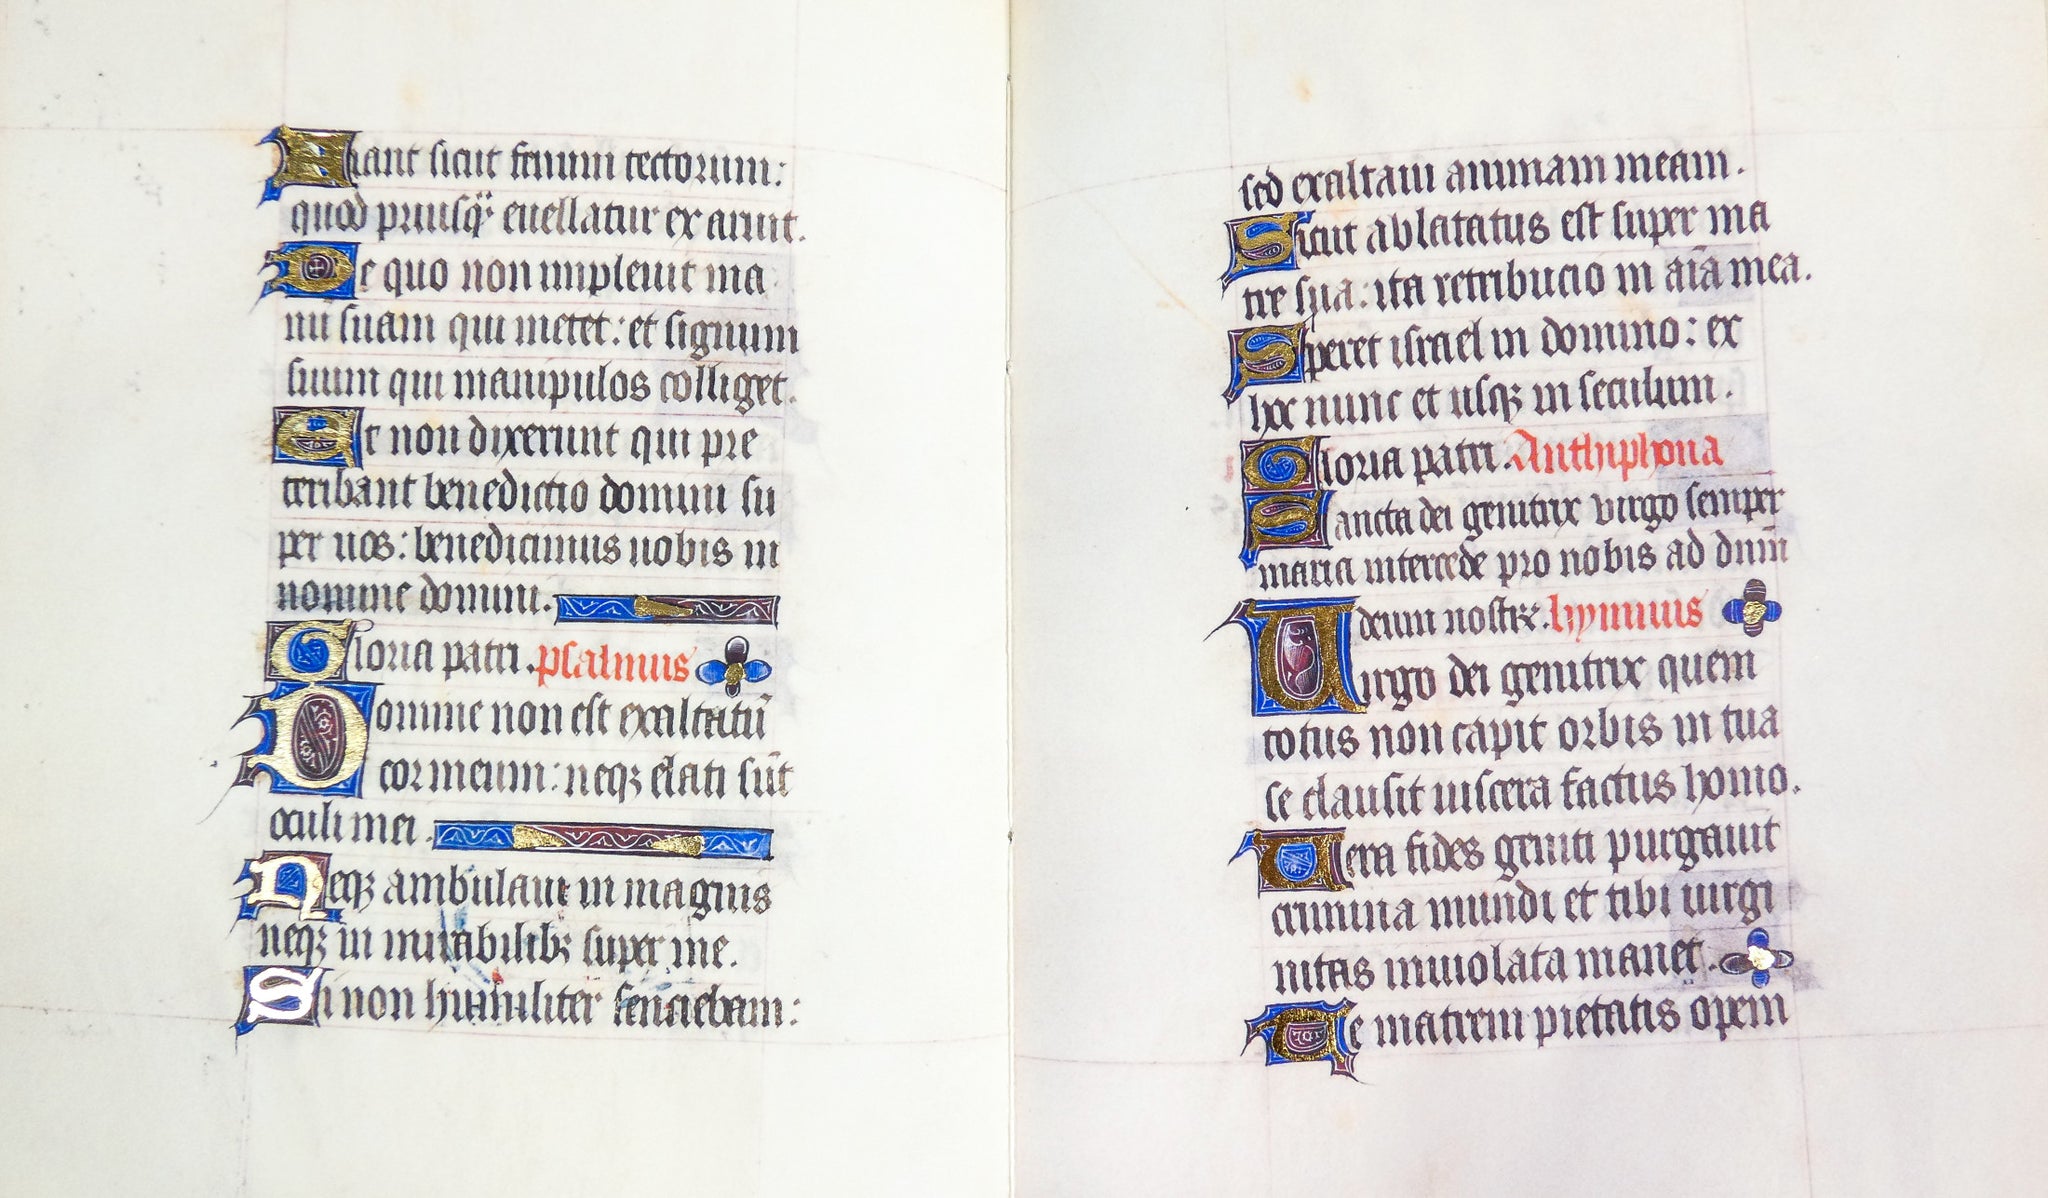 Fiant sicut fenum tectorum:
quod priusq̃ᷓ euellatur exaruit.
De quo non impleuit ma
nū suam qui metet: et signum
suum qui manipulos colliget.
Et non dixerunt qui pre
teribant benedictio domini su
per uos: benedicimus uobis in
nomine domini.
Gloria patri. psalmus
Domine non est exaltatū
cor meum: neqꝫ elati sūt
oculi mei.
Neqꝫ ambulaui in magnis
neqꝫ in mirabilibꝫ super me.
Si non humiliter senciebam:
sed exaltaui animam meam.
Sicut ablatatus est super ma
tre sua: ita retribucio in aīa mea.
Speret israel in domino: ex
hoc nunc et usqꝫ in seculum.
Gloria patri. Anthiphona
Sancta dei genitrix virgo semper
maria intercede pro nobis ad dnm̄
deum nostrꝫ. hymnus
Uirgo dei genitrix quem
totus non capit orbis in tua
se clausit uiscera factus homo.
Uera fides geniti purgauit
crimina mundi et tibi uirgi
nitas inuiolata manet.
Te matrem pietatis opem